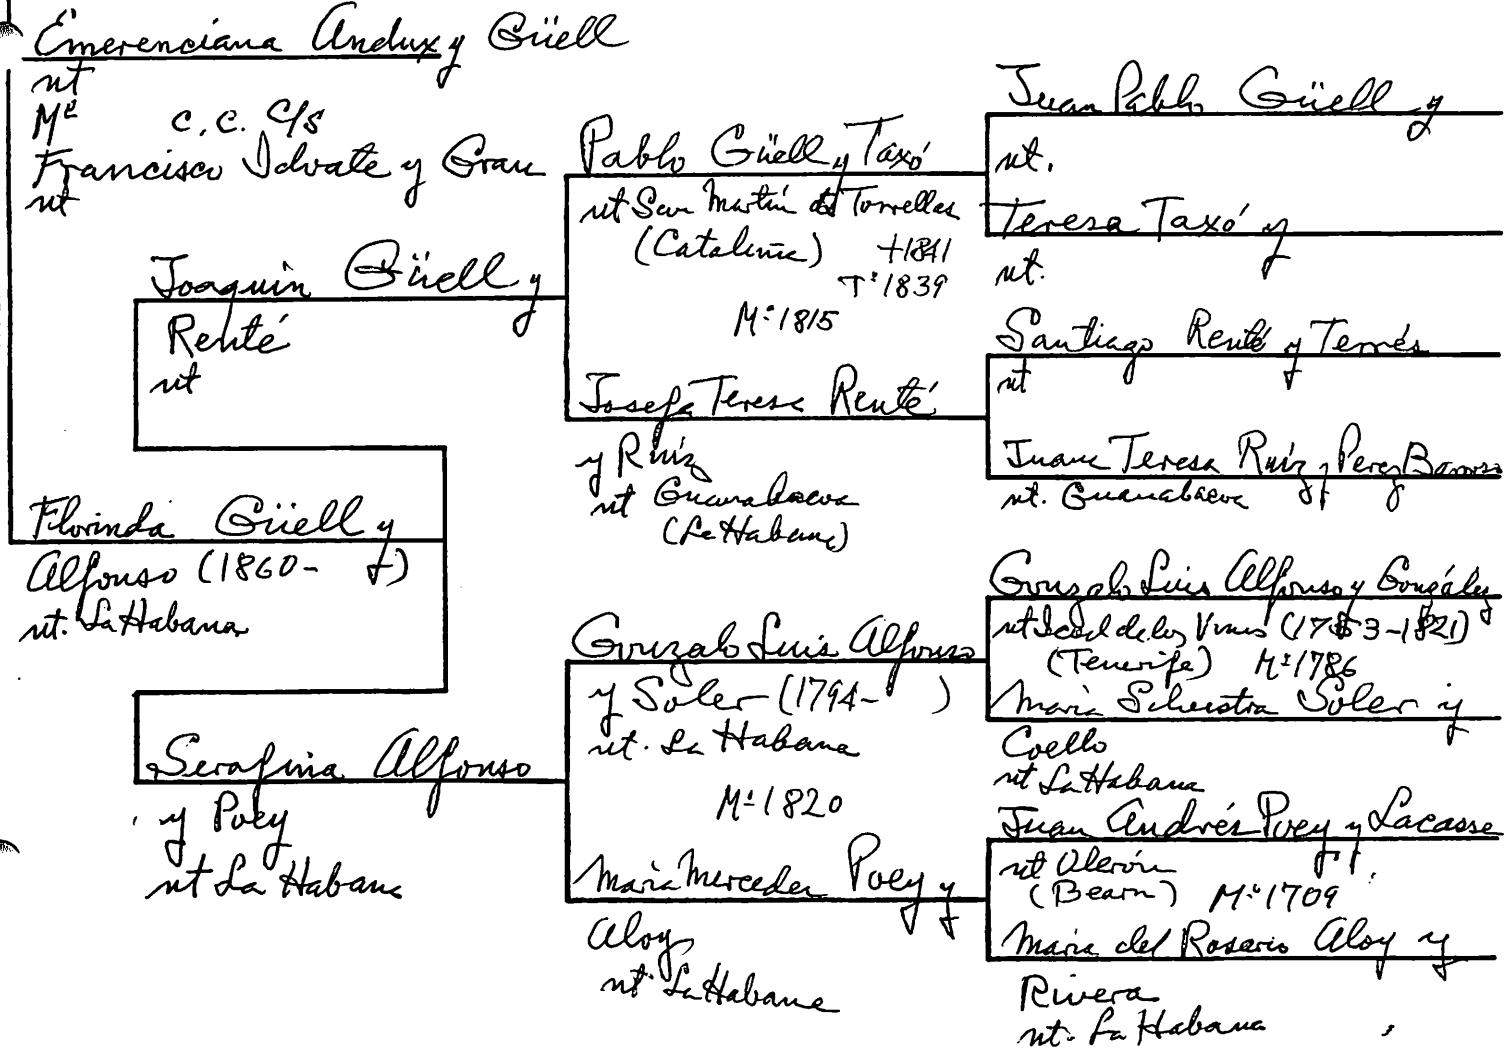 Emerenciana Andux y Güell
nt
Mº c.c. c/s
Francisco Idvate y Grau
nt
Joaquin Güell y
Renté
nt
Florinda Güell y
Alfonso (1860- )
nt. La Habana
Serafina Alfonso
y Poey
nt La Habana
Pablo Güell y Taxó
nt San Martín de Torrellas
(Cataluña) +1841
Tº 1839
Mº 1815
Josefa Teresa Renté
y Ruíz
nt Guanabacoa
(La Habana)
Gonzalo Luis Alfonso
y Soler (1794- )
nt. La Habana
Mº 1820
Maria Mercedes Poey y
Aloy
nt. La Habana
Juan Pablo Güell y
nt.
Teresa Taxó y
nt.
Santiago Renté y Ternés
nt
Juana Teresa Ruíz y Perez Barroso
nt. Guanabacoa
Gonzalo Luis Alfonso y González
nt Icod de los Vinos (1753-1821)
(Tenerife) Mº 1786
Maria Silvestra Soler y
Coello
nt La Habana
Juan Andrés Poey y Lacasse
nt Olerón
(Bearn) Mº 1709
Maria del Rosario Aloy y
Rivera
nt. La Habana